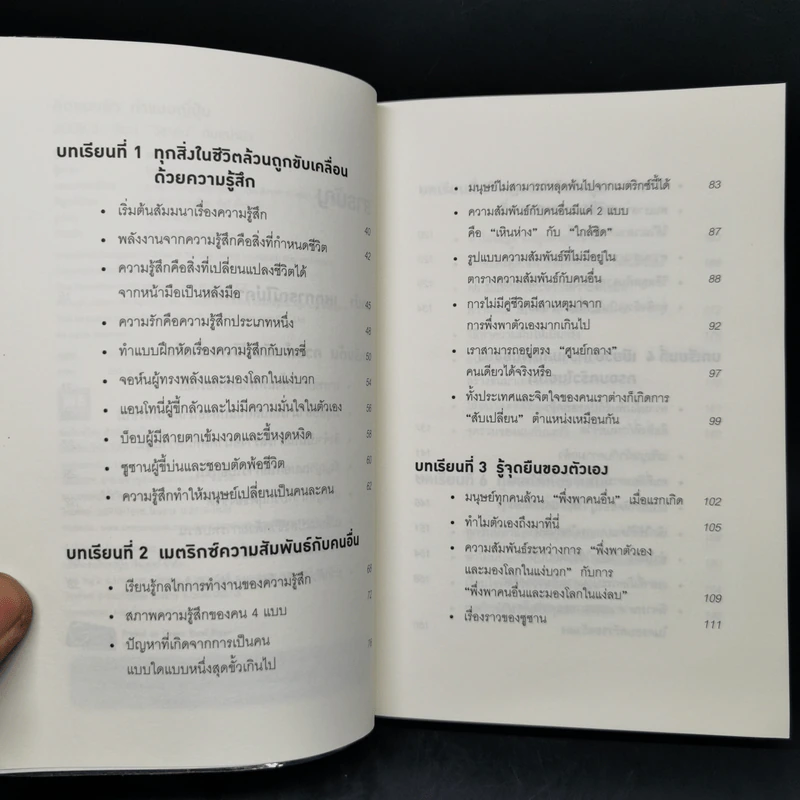 บทเรียนที่ 1 ทุกสิ่งในชีวิตล้วนถูกขับเคลื่อน
ด้วยความรู้สึก
• เริ่มต้นสัมมนาเรื่องความรู้สึก 40
• พลังงานจากความรู้สึกคือสิ่งที่กำหนดชีวิต 42
• ความรู้สึกคือสิ่งที่เปลี่ยนแปลงชีวิตได้
จากหน้ามือเป็นหลังมือ 45
• ความรักคือความรู้สึกประเภทหนึ่ง 48
• ทำแบบฝึกหัดเรื่องความรู้สึกกับเทรซี่ 50
• จอห์นผู้ทรงพลังและมองโลกในแง่บวก 54
• แอนโทนี่ผู้ขี้กลัวและไม่มีความมั่นใจในตัวเอง 56
• บ็อบผู้มีสายตาเข้มงวดและขี้หงุดหงิด 58
• ซูซานผู้ขี้บ่นและชอบตัดพ้อชีวิต 60
• ความรู้สึกทำให้มนุษย์เปลี่ยนเป็นคนละคน 62
บทเรียนที่ 2 เมตริกซ์ความสัมพันธ์กับคนอื่น
• เรียนรู้กลไกการทำงานของความรู้สึก 68
• สภาพความรู้สึกของคน 4 แบบ 72
• ปัญหาที่เกิดจากการเป็นคน
แบบใดแบบหนึ่งสุดขั้วเกินไป 76
• มนุษย์ไม่สามารถหลุดพ้นไปจากเมตริกซ์นี้ได้ 83
• ความสัมพันธ์กับคนอื่นมีแค่ 2 แบบ
คือ “เหินห่าง” กับ “ใกล้ชิด” 87
• รูปแบบความสัมพันธ์ที่ไม่มีอยู่ใน
ตารางความสัมพันธ์กับคนอื่น 88
• การไม่มีคู่ชีวิตมีสาเหตุมาจาก
การพึ่งพาตัวเองมากเกินไป 92
• เราสามารถอยู่ตรง “ศูนย์กลาง”
คนเดียวได้จริงหรือ 97
• ทั้งประเทศและจิตใจของคนเราต่างก็เกิดการ
“สับเปลี่ยน” ตำแหน่งเหมือนกัน 99
บทเรียนที่ 3 รู้จุดยืนของตัวเอง
• มนุษย์ทุกคนล้วน “พึ่งพาคนอื่น” เมื่อแรกเกิด 102
• ทำไมตัวเองถึงมาที่นี่ 105
• ความสัมพันธ์ระหว่างการ “พึ่งพาตัวเอง
และมองโลกในแง่บวก” กับการ
“พึ่งพาคนอื่นและมองโลกในแง่ลบ” 109
• เรื่องราวของซูซาน 111